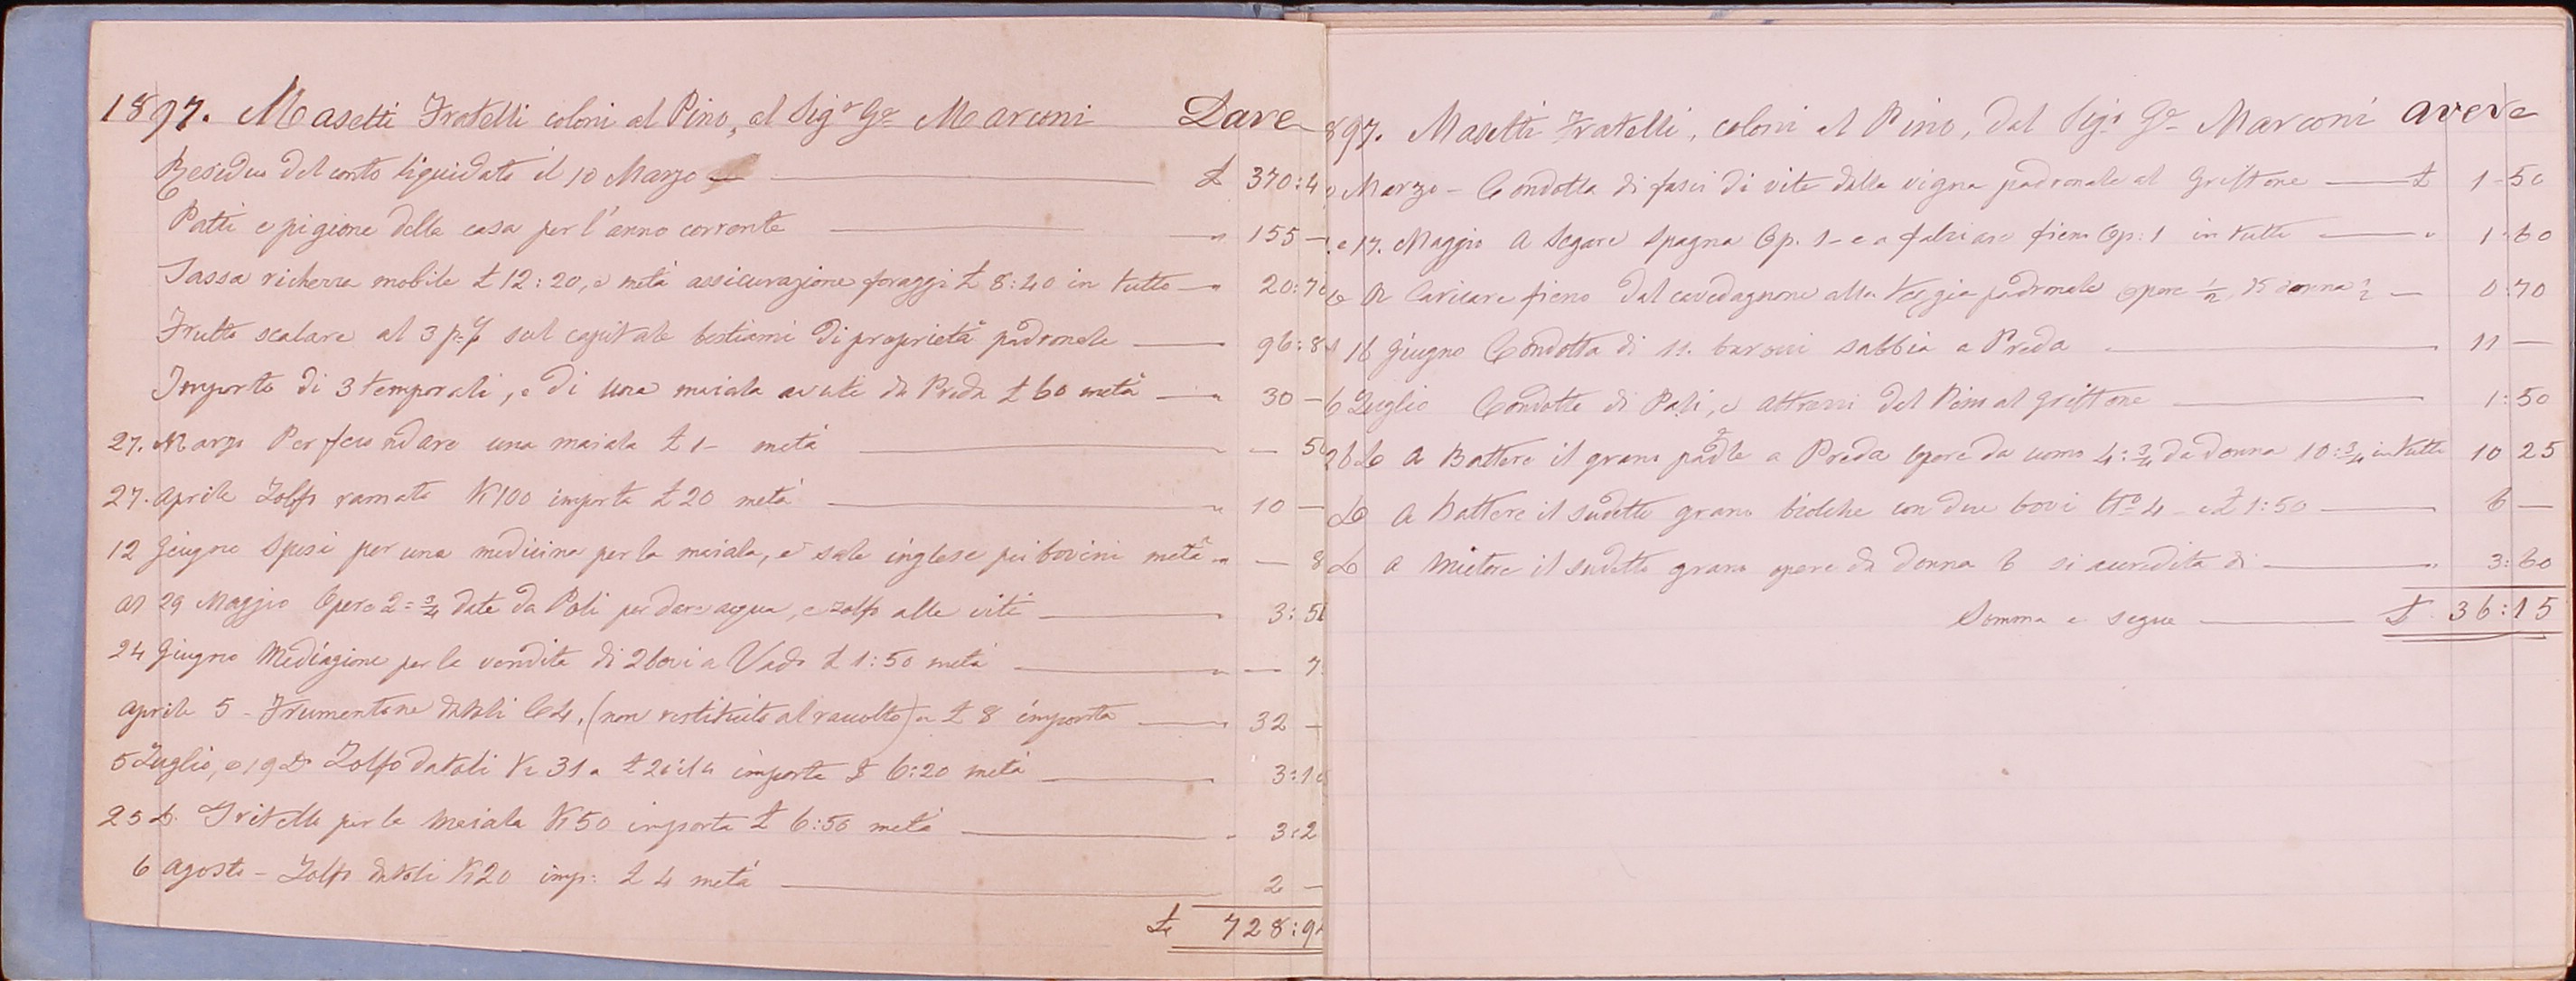 1897. Masetti Fratelli coloni al Pino, al Sigr Ge Marconi Dare
Residuo del conto liquidato il 10 Marzo £ 370:4
Patti e pigione della casa per l'anno corrente " 155 -
Tassa richezza mobile £ 12:20, e metà assicurazione foraggi £ 8:40 in tutto " 20:70
Frutto scalare al 3 p% sul capitale bestiami di proprietà padronale 96:8
Importo di 3 temporali, e di una maiala avuti da Preda £ 60 metà " 30 -
27. Marzo Per fecondare una maiala £ 1- metà — 50
27. Aprile Zolfo ramato K 100 importa £ 20 metà " 10 -
12 Giugno Spesi per una medicina per la maiala, e sale inglese pei bovini metà " — 8
Al 29 Maggio Opere 2=3/4 date da Poli per dare acqua, e zolfo alle viti 3:50
24 Giugno Mediazione per la vendita di 2 bovi a Vado £ 1:50 metà " — 7
Aprile 5 - Frumentone datoli C 4, (non restituito al raccolto) a £ 8 importa 32 -
5 Luglio, e 19 Do Zolfo datoli K 31 a £ 20 importa £ 6:20 metà 3:10
25 Do. Tritello per la Maiala K 50 importa £ 6:50 metà " 3:2
6 Agosto - Zolfo datoli K 20 imp: £ 4 metà 2 -
£ 728:9
897. Masetti Fratelli, coloni al Pino, dal Sigr Ge Marconi avere
Marzo - Condotta di fasci di vite dalla vigna padronale al Griffone £ 1-50
e 17. Maggio A Segare Spagna Op. 1- e a falciare fieno Op: 1 in tutto " 1:60
A Caricare fieno dal cavedagnone alla Teggia padronale opere 1/2, di donna 1/2 — 0:70
16 Giugno Condotta di 11. barocci sabbia a Preda " 11 —
6 Luglio Condotta di Pali, e attrezzi dal Pino al Griffone 1:50
26 Do A Battere il grano padle a Preda Opere da uomo 4:3/4 da donna 10:3/4 in tutto 10 25
Do A Battere il sudetto grano biolche con due bovi No 4 - a £ 1:50 6 —
Do A Mietere il sudetto grano opere da donna 6 si accredita di " 3:60
Somma e segue £ 36:15